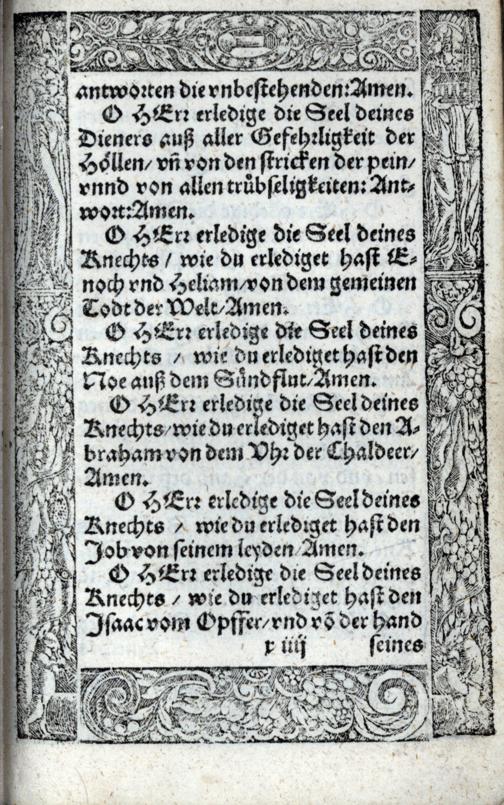 antworten die vnbestehenden: Amen.
O HErr erledige die Seel deines
Dieners auß aller Gefehrligkeit der
Höllen/ vñ von den stricken der pein/
vnnd von allen trübseligkeiten: Ant-
wort: Amen.
O HErr erledige die Seel deines
Knechts / wie du erlediget hast E-
noch vnd Heliam/ von dem gemeinen
Todt der Welt/ Amen.
O HErr erledige die Seel deines
Knechts / wie du erlediget hast den
Noe auß dem Sündflut/ Amen.
O HErr erledige die Seel deines
Knechts/ wie du erlediget hast den A-
braham von dem Vhr der Chaldeer/
Amen.
O HErr erledige die Seel deines
Knechts / wie du erlediget hast den
Job von seinem leyden/ Amen.
O HErr erledige die Seel deines
Knechts / wie du erlediget hast den
Isaac vom Opffer/ vnd võ der hand
x iiij seines